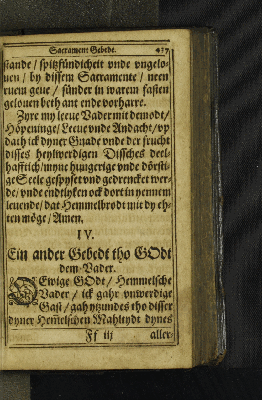 Sacrament Gebede. 437
stande / spitzfündicheit vnde vngelo-
uen / by dissem Sacramente / neen
ruem geue / sünder in warem fasten
gelouen beth ant ende vorharre.
Zyre my leeue Vader mit demodt /
Höpeninge / Leeue vnde Andacht / vp
dath ick dyner Gnade vnde der frucht
disses heylwerdigen Disches deel-
hafftich / myne hungerige vnde dörsti-
ge Seele gespyset vnd gedrencket wer-
de / vnde endtlyken ock dort in yennem
leuende / dat Hemmelbrodt mit dy eh-
ten möge / Amen.
IV.
Ein ander Gebedt tho GOdt
dem Vader.
O Ewige GOdt / Hemmelsche
Vader / ick gahr vnwerdige
Gast / gah ytzundes tho disser
dyner Hem̄elschen Mahltydt dynes
Ff iij aller-